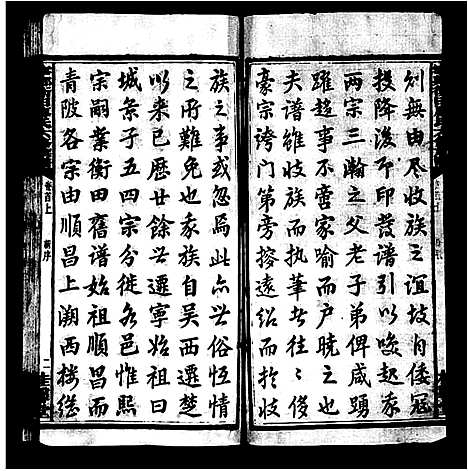 刿無由尽收族之誼坡自倭冦
投降後不印發譜引以喚起永
两宗三瀚之父老子弟俾咸踴
躍趨事不啻家喻而户曉之也
夫譜雖收族而执筆者往往侈
豪宗誇門第旁搜遠紹而於收
族之事或忽焉此亦世俗恆情
之所難免也永族自吴西遷楚
以来已歷廿餘世遷寧始祖司
城条子五四宗分徙各邑惟熙
宗嗣業衡田舊譜始祖順昌而
青陂各宗由順昌上溯西楼継
卷首上
新序
二